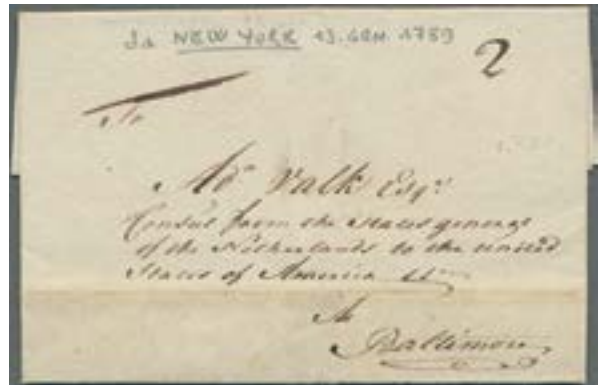 Da NEW YORK 13. GEN. 1789
2
To
Ad.n Valk Esq.r
Consul from the States general
of the Netherlands to the united
States of America
Baltimore